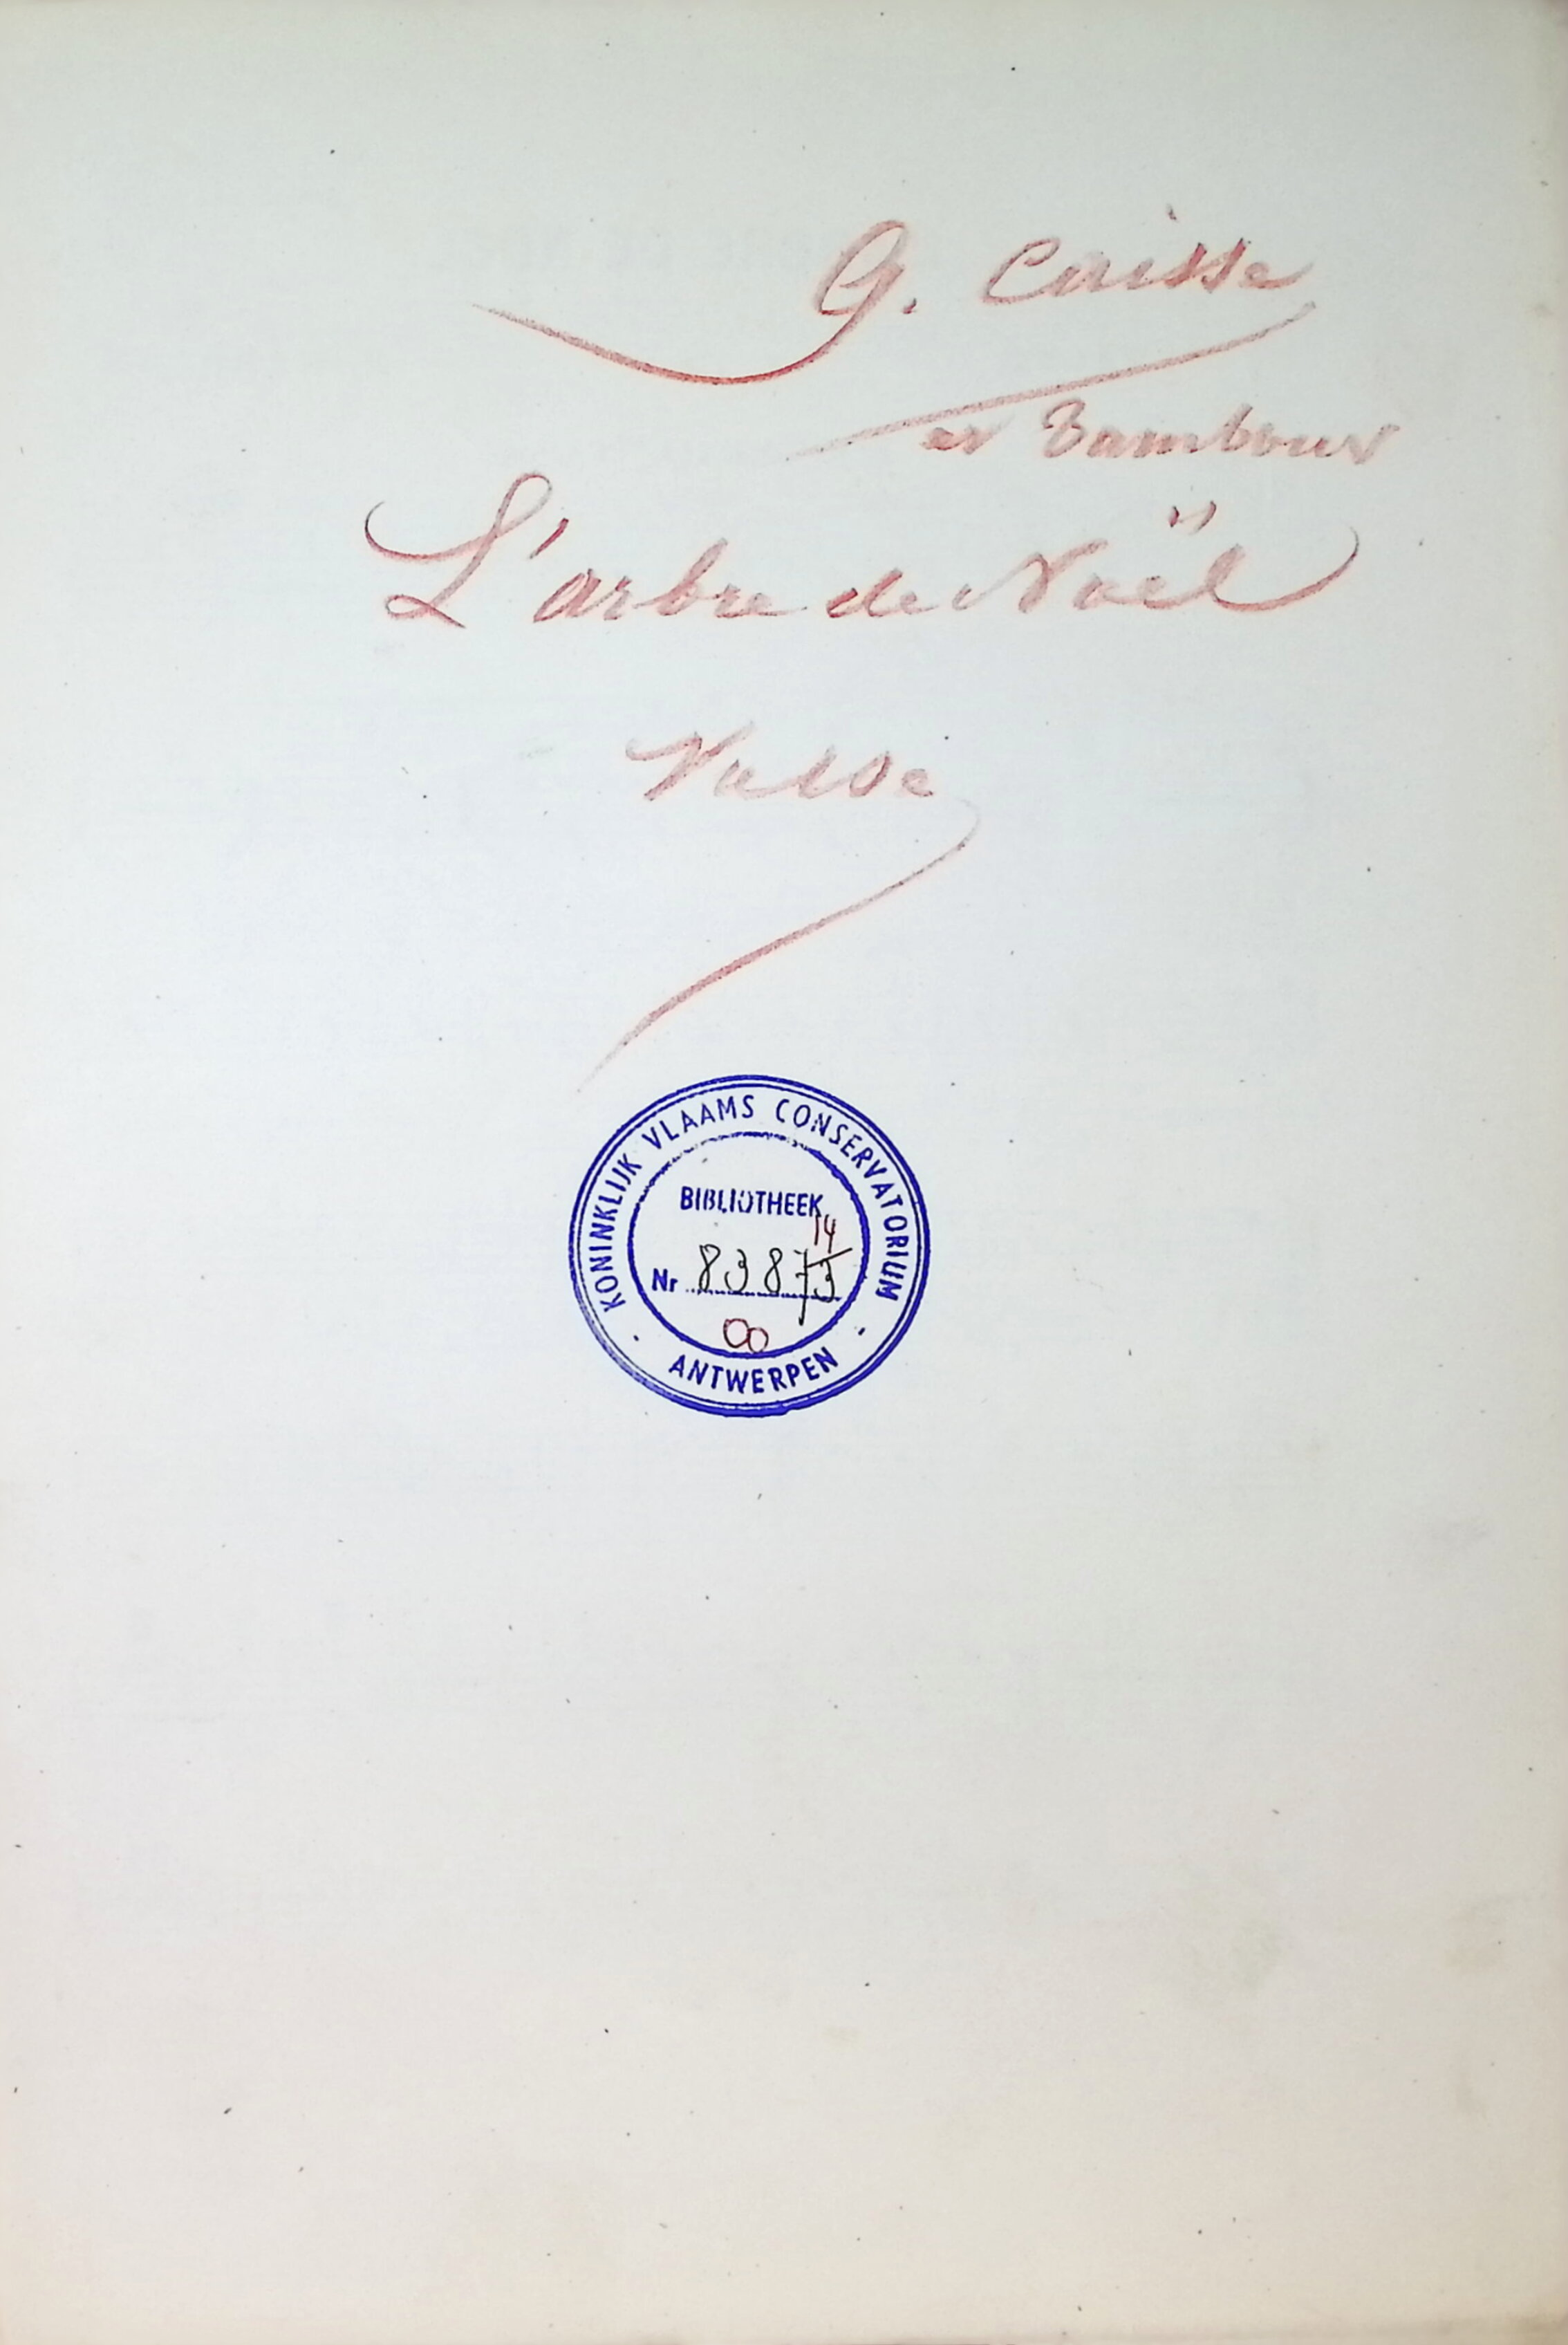 G. Caisse
et Tambour
L'arbre de Noël
Valse
KONINKLIJK VLAAMS CONSERVATORIUM
BIBLIOTHEEK
14
Nr 83873
Oo
ANTWERPEN